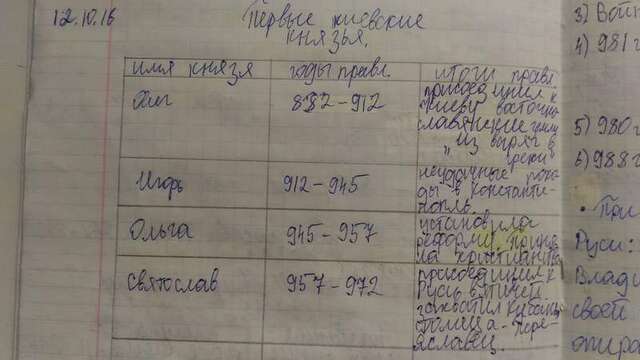 12.10.16
Первые киевские
князья.
имя князя
годы правл.
итоги правл.
Олег
882-912
присоединил к
Киеву восточно
славянские
"Из варяг в
греки"
Игорь
912-945
неудачные похо
ды в Константи-
нополь.
Ольга
945-957
установила
реформы. Приня
ла христианство
Святослав
957-972
присоединил к
Руси вятичей
захватил
столица - Пере-
яславец.
3) Вой
4) 981 г
5) 980
6) 988 г
•
Руси:
Влади
своей
опира